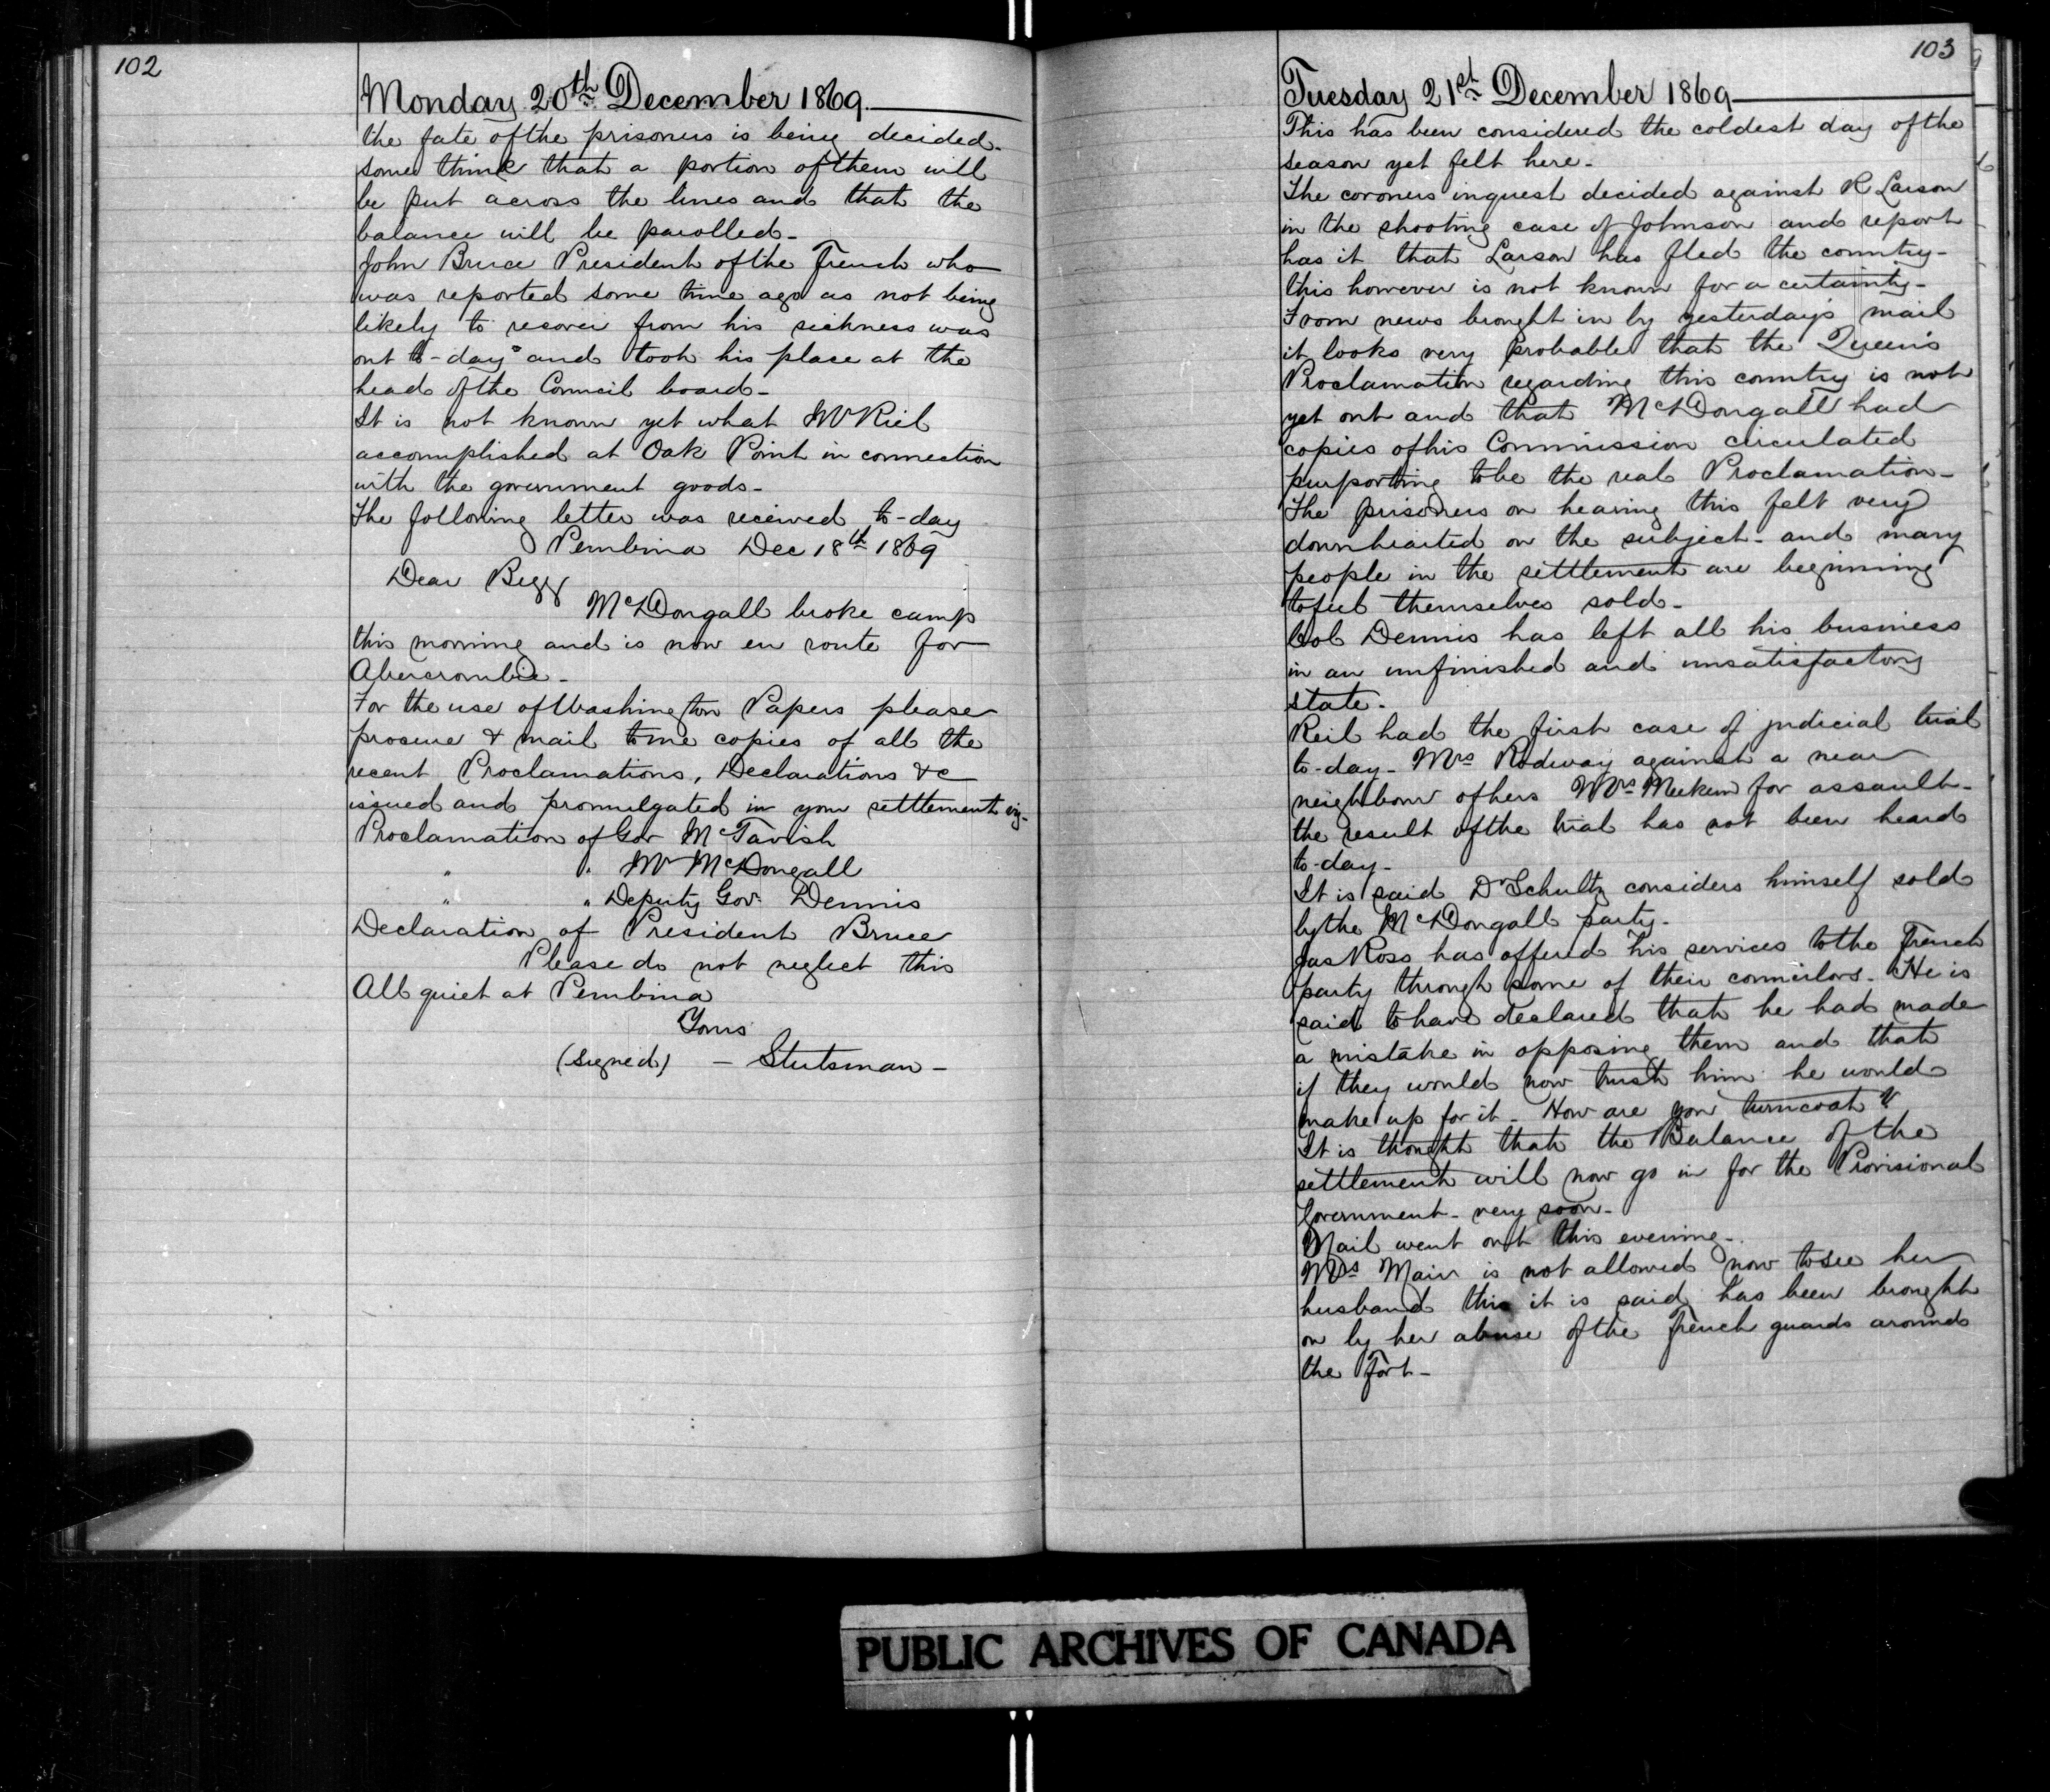 102
Monday 20th December 1869.
the fate of the prisoners is being decided.
some think that a portion of them will
be put across the lines and that the
balance will be parolled -
John Bruce President of the French who
was reported some time ago as not being
likely to recover from his sickness was
out to-day and took his place at the
head of the Council board -
It is not known yet what Mr Riel
accomplished at Oak Point in connection
with the government goods -
The following letter was received to-day
Pembina Dec 18th 1869
Dear Begg
McDougall broke camp
this morning and is now en route for
Abercrombie -
For the use of Washington Papers please
procure & mail to me copies of all the
recent Proclamations, Declarations &c
issued and promulgated in your settlement viz-
Proclamation of Gov McTavish
" " Mr McDougall
" " Deputy Gov. Dennis
Declaration of President Bruce
Please do not neglect this
All quiet at Pembina
Yours
(signed) - Stutsman -
103
Tuesday 21st December 1869
This has been considered the coldest day of the
season yet felt here -
The coroners inquest decided against R Larson
in the shooting case of Johnson and report
has it that Larson has fled the country -
this however is not known for a certainty -
From news brought in by yesterday's mail
it looks very probable that the Queen's
Proclamation regarding this country is not
yet out and that McDougall had
copies of his Commission circulated
purporting to be the real Proclamation -
The prisoners on hearing this felt very
downhearted on the subject - and many
people in the settlement are beginning
to feel themselves sold -
Col Dennis has left all his business
in an unfinished and unsatisfactory
state -
Reil had the first case of judicial trial
to-day - Mrs Rodway against a near
neighbour of hers Mrs Meekum for assault -
the result of the trial has not been heard
to-day -
It is said Dr Schultz considers himself sold
by the McDougall party -
Jas Ross has offered his services to the French
party through some of their councilors - He is
said to have declared that he had made
a mistake in opposing them and that
if they would now trust him he would
make up for it - How are you turncoat ?
It is thought that the Balance of the
settlement will now go in for the Provisional
Government - very soon -
Mail went out this evening -
Mrs Mair is not allowed now to see her
husband this it is said has been brought
on by her abuse of the French guards around
the Fort -
PUBLIC ARCHIVES OF CANADA